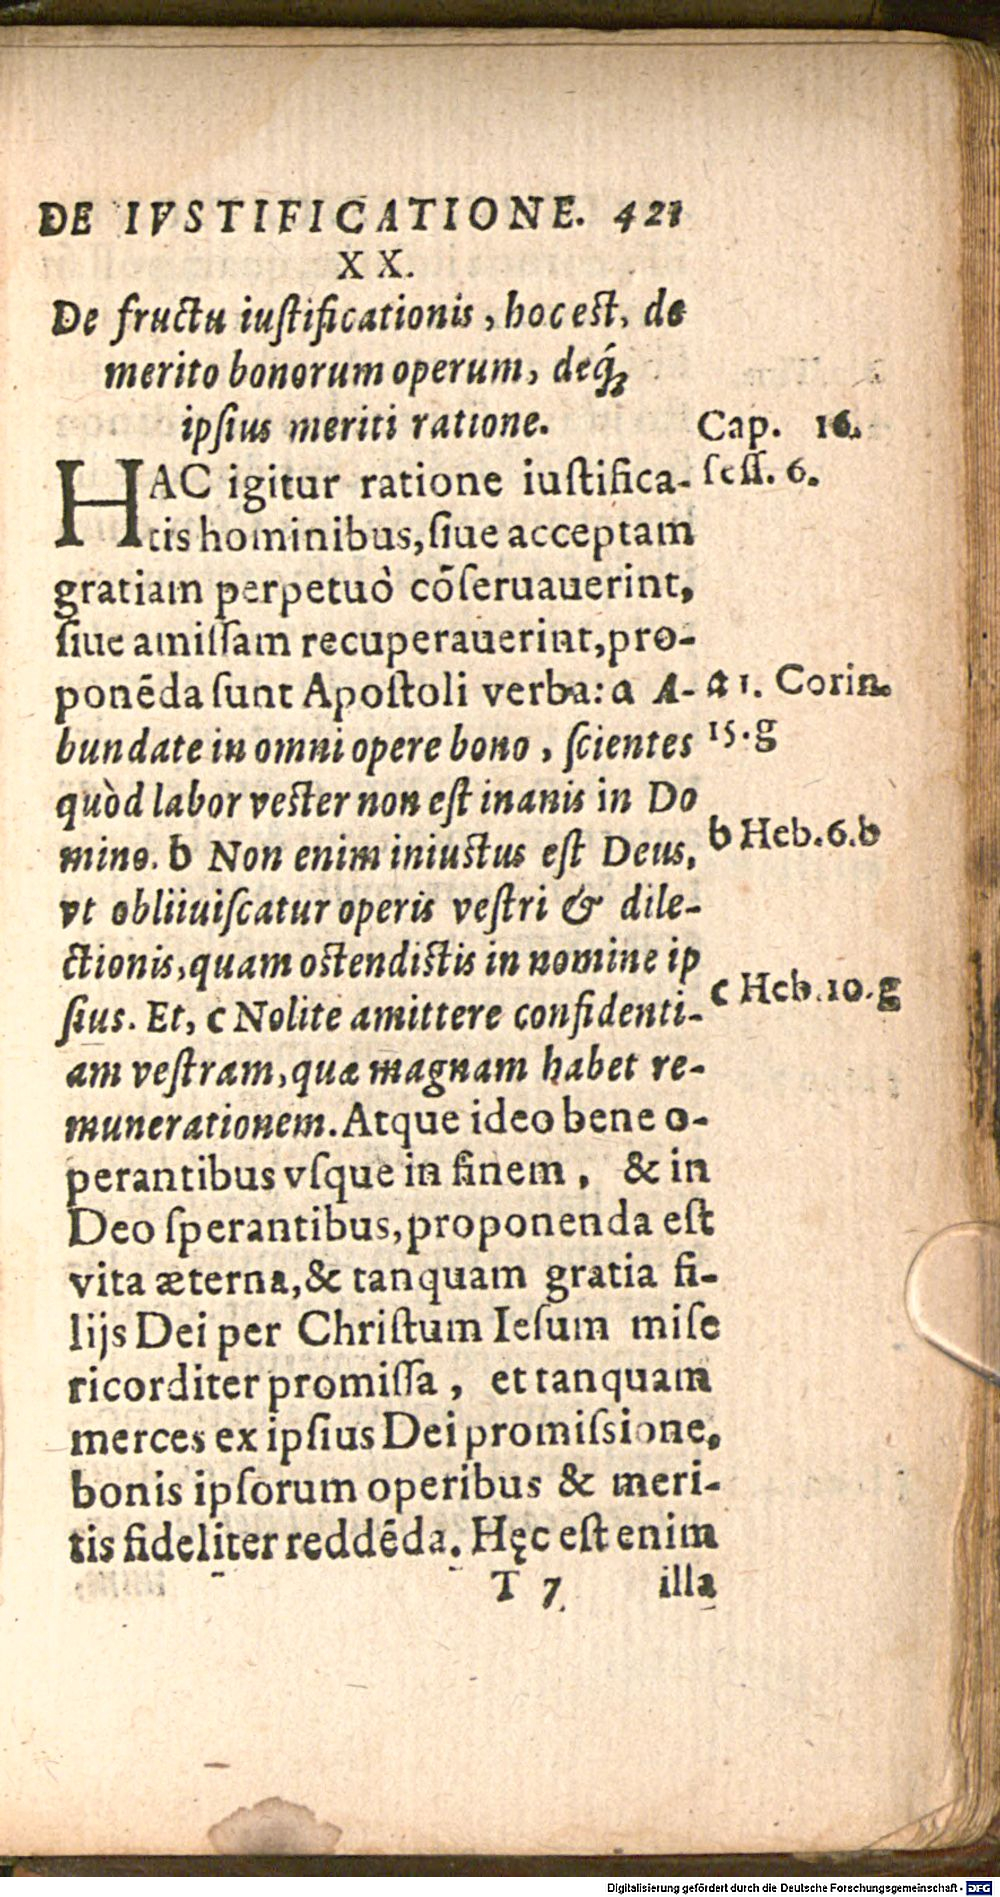 DE IVSTIFICATIONE. 421
XX.
De fructu iuſtificationis, hoc eſt, de
merito bonorum operum, deq́;
ipſius meriti ratione.
Cap. 16.
ſeſſ. 6.
HAC igitur ratione iuſtifica-
tis hominibus, ſiue acceptam
gratiam perpetuò cōſeruauerint,
ſiue amiſſam recuperauerint, pro-
ponēda ſunt Apoſtoli verba: a A-
a 1. Corin.
15. g
bundate in omni opere bono, ſcientes
quòd labor veſter non eſt inanis in Do
mino. b Non enim iniuſtus eſt Deus,
b Heb. 6. b
vt obliiuiſcatur operis veſtri & dile-
ctionis, quam oſtendiſtis in nomine ip
ſius. Et, c Nolite amittere confidenti-
c Heb. 10. g
am veſtram, quæ magnam habet re-
munerationem. Atque ideo bene o-
perantibus vſque in finem, & in
Deo ſperantibus, proponenda eſt
vita æterna, & tanquam gratia fi-
lijs Dei per Chriſtum Ieſum miſe
ricorditer promiſſa, et tanquam
merces ex ipſius Dei promiſsione,
bonis ipſorum operibus & meri-
tis fideliter reddēda. Hęc eſt enim
T 7 illa
Digitalisierung gefördert durch die Deutsche Forschungsgemeinschaft - DFG